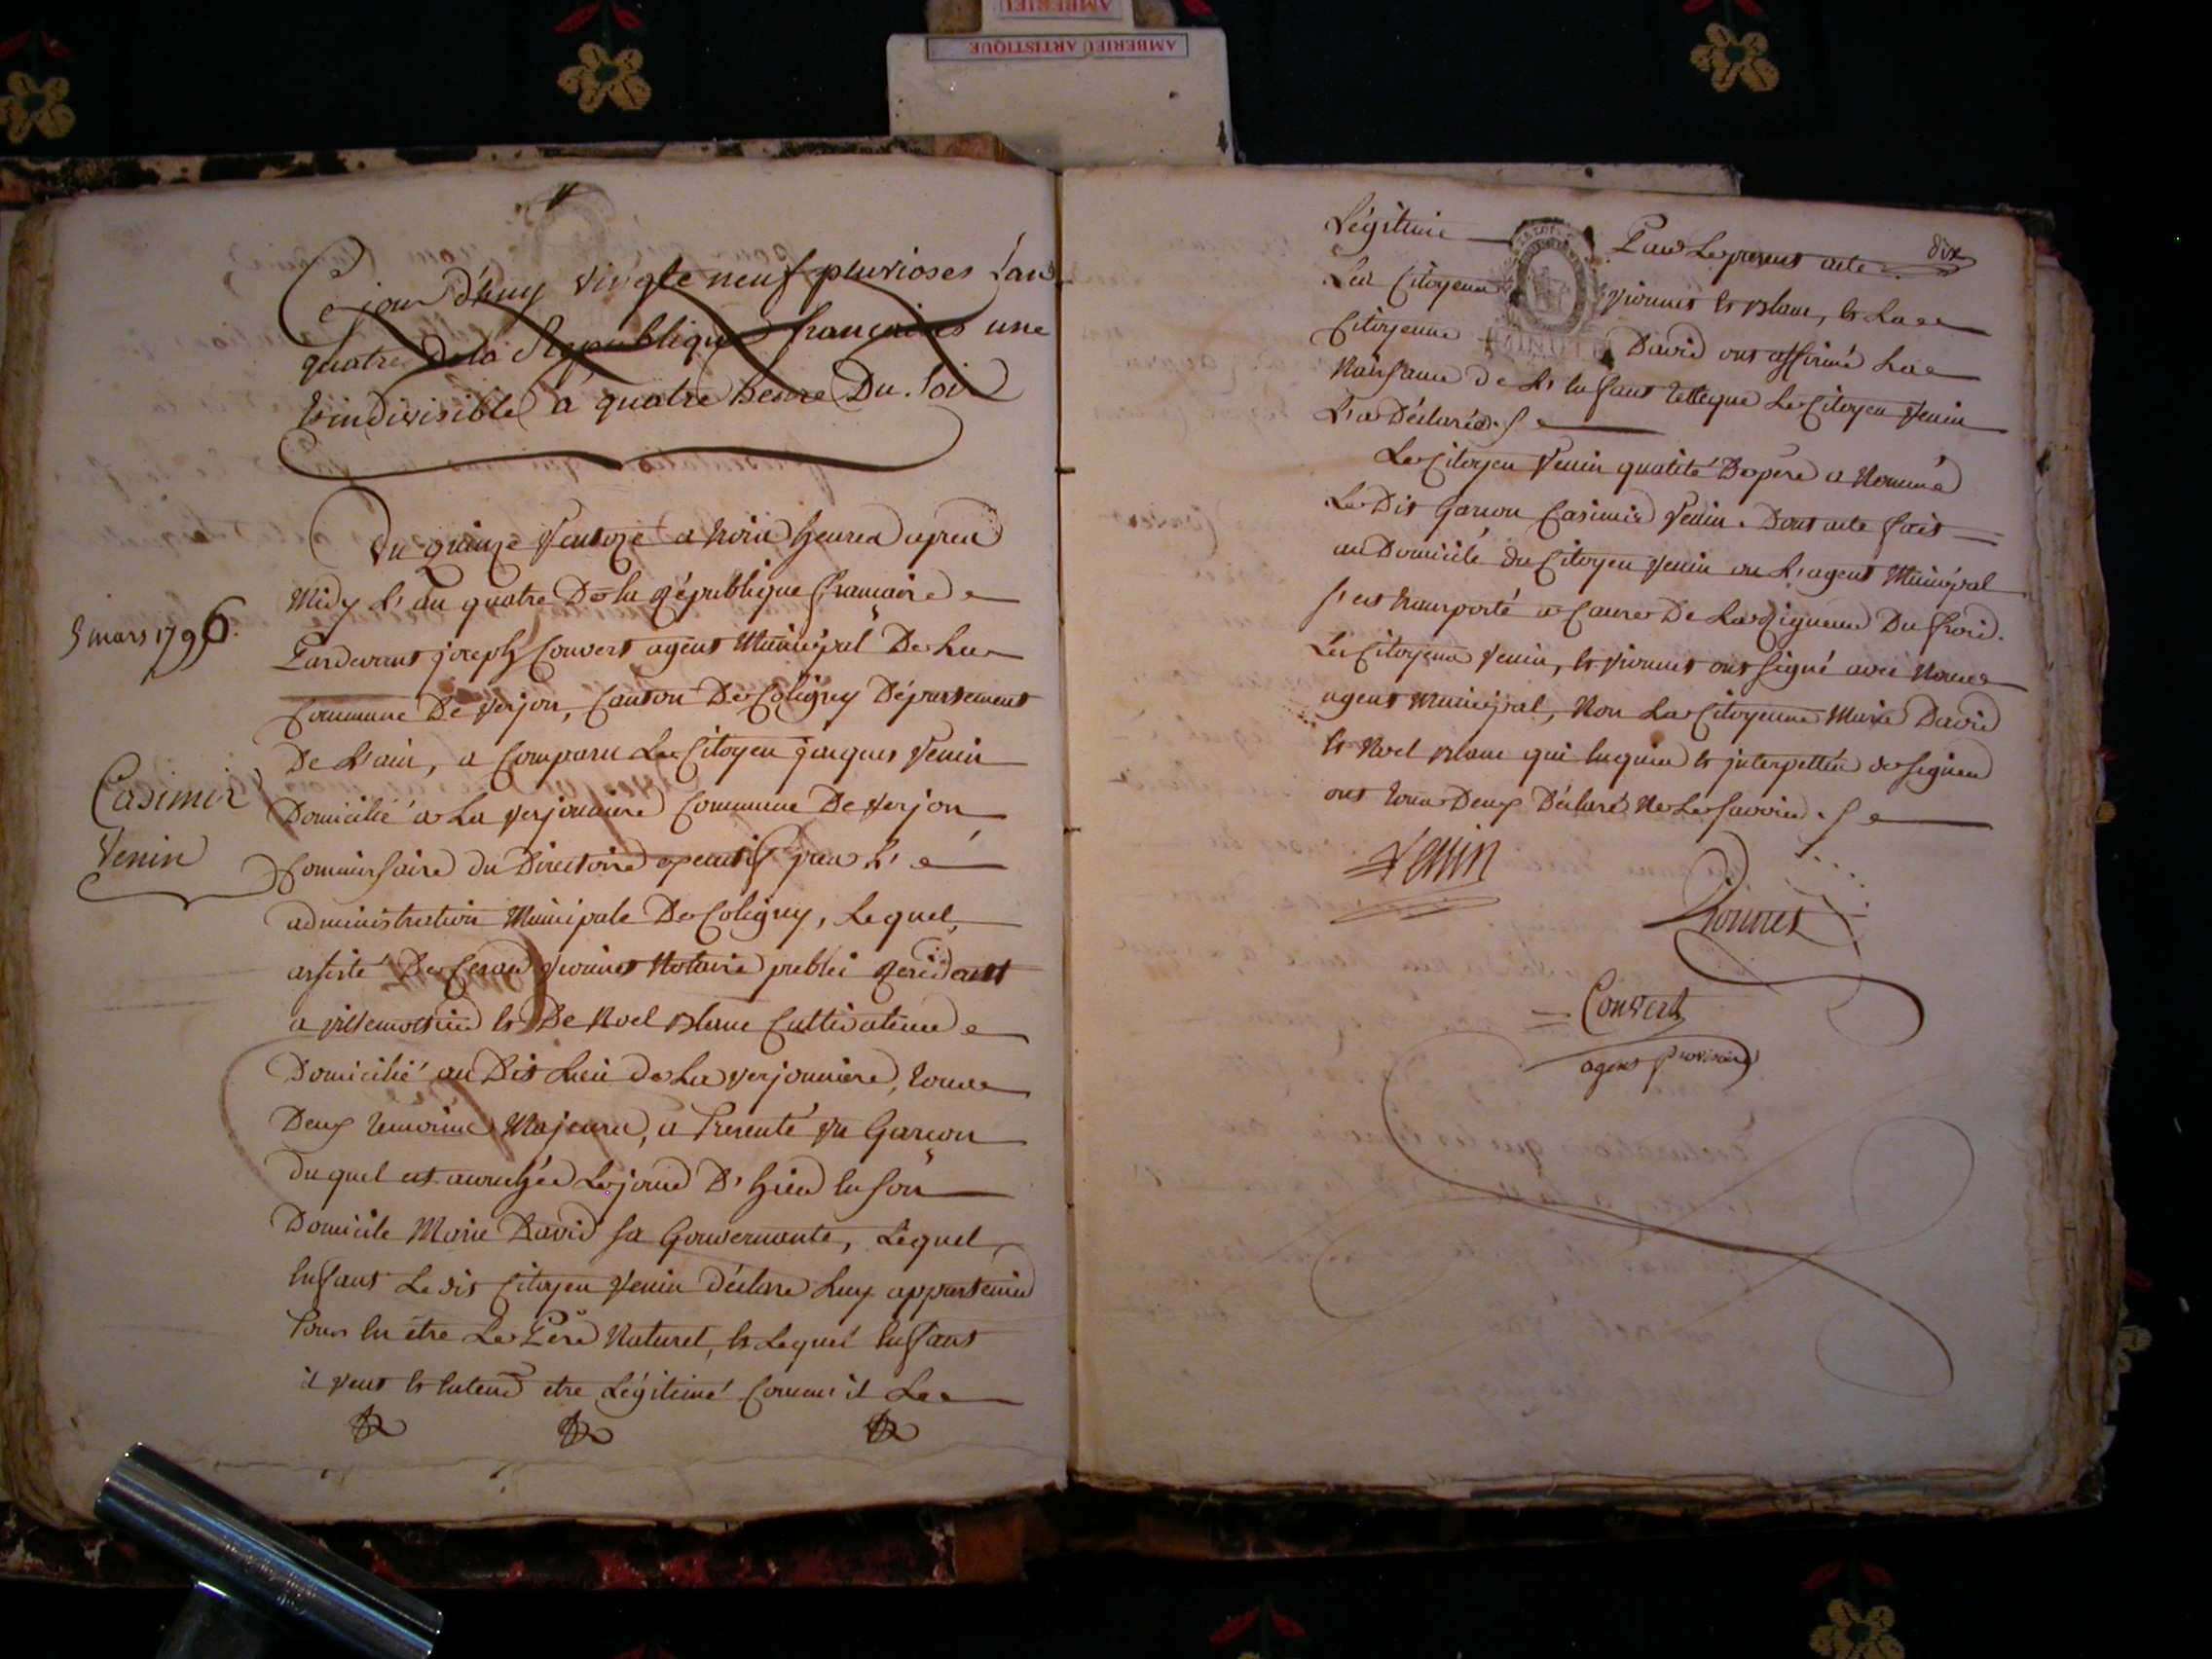 AMBERIEU
AMBERIEU ARTISTIQUE
Ce jour d'huy vingte neuf pluvioses L'an
quatre De la Republique françaises une
et indivisible a quatre heure Du Soir
Du quinze Ventoze a trois heures apres
Midy L'an quatre De la République francaise
5 mars 1796.
Pardevant joseph Convert agent Municipal De La
Commune De Verjon, Canton De Coligny Département
De L'ain, a Comparu Le Citoyen jacques Venin
Casimir
Venin
Domicilié a La Verjonniere Commune De Verjon
Commissaire du Directoire executif pres L'
administration Municipale De Coligny, Lequel
assisté De Cesar Vionnet Notaire public Residant
a villemotier et De Noel Blanc Cultivateur
Domicilié au Dit Lieu de La verjonniere, tous
Deux temoins Majeurs, a Presenté un Garcon
duquel est accouchée Le jour D'hier en son
Domicile Marie David sa Gouvernante, Lequel
enfant Le dit Citoyen Venin déclare Luy appartenir
Pour en être Le Père Naturel, et Lequel enfant
il veut et entend etre Légitimé Comme il Le
Légitime Par Le present acte dix
Les Citoyens Vionnet et Blanc, et La
Citoyenne David ont affirmé La
Naissance de L'enfant telle que Le Citoyen Venin
L'a Déclarée.
Le Citoyen Venin qualité De père a Nommé
Le Dit Garcon Casimir Venin. Dont acte fait
au Domicile du Citoyen Venin ou L'agent Municipal
s'est transporté a Cause De La Rigueur Du froid.
Les Citoyens Venin, et Vionnet ont signé avec Nous
agent Municipal, Non La Citoyenne Marie David
et Noel Blanc qui enquis et interpellés de signer
ont tous Deux Déclaré Ne Le Savoir.
Venin
Vionnet
Convert
agent provisoire